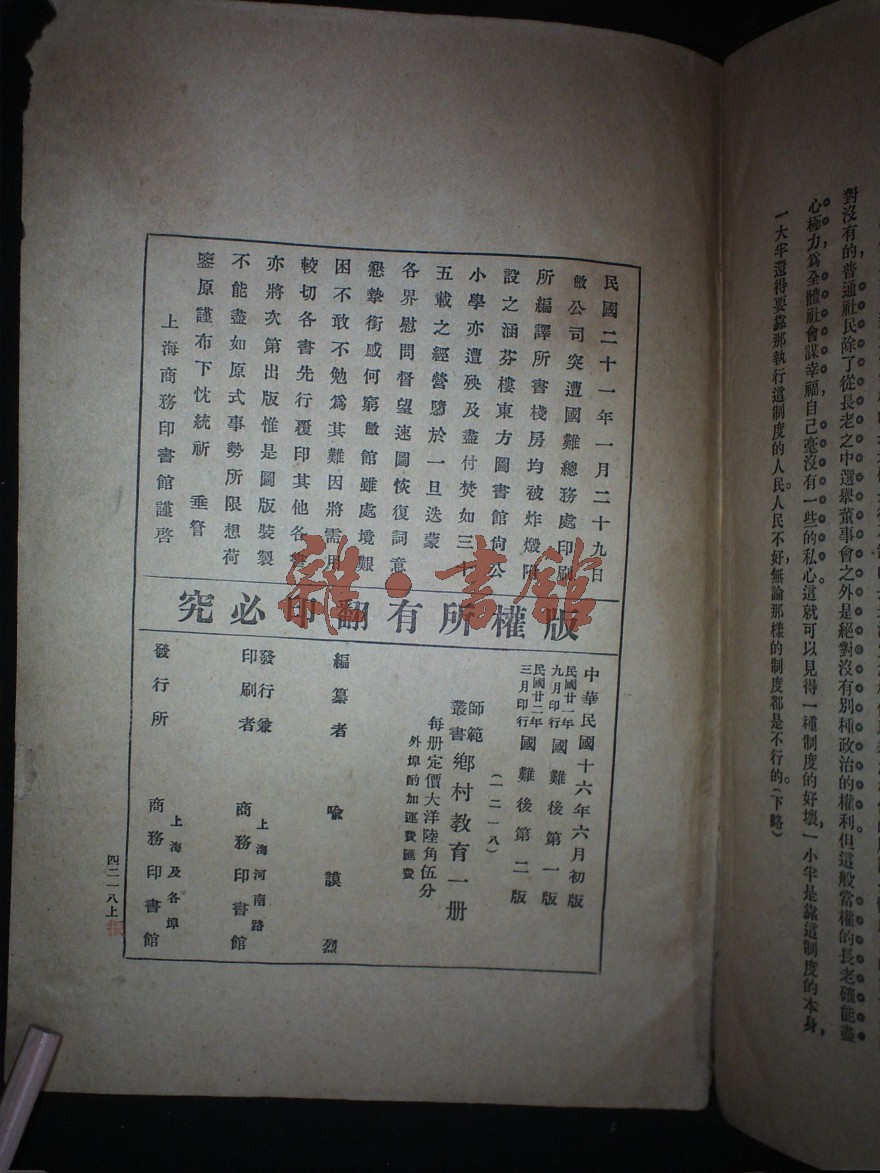 對沒有的普通社民除了從長老之中選舉董事會之外是絕對沒有別種政治的權利但這般當權的長老確能盡
心極力爲全體社會謀幸福,自己毫沒有一些的私心。這就可以見得一種制度的好壞,一小半是靠這制度的本身,
一大半還得要靠那執行這制度的人民。人民不好,無論那樣的制度都是不行的。(下略)
民國二十一年一月二十九日
敝公司突遭國難總務處印刷
所編譯所書棧房均被炸燬附
設之涵芬樓東方圖書館尙公
小學亦遭殃及盡付焚如三十
五載之經營隳於一旦迭蒙
各界慰問督望速圖恢復詞意
懇摯銜感何窮敝館雖處境艱
困不敢不勉爲其難因將需用
較切各書先行覆印其他各書
亦將次第出版惟是圖版裝製
不能盡如原式事勢所限想荷
鑒原謹布下忱統祈 垂詧
上海商務印書館謹啓
版權所有翻印必究
中華民國十六年六月初版
民國廿一年九月印行 國難後第一版
民國廿二年三月印行 國難後第二版
(一二一八)
師範叢書 鄉村教育一册
每册定價大洋陸角伍分
外埠酌加運費匯費
編纂者 喩謨烈
發行兼印刷者 上海河南路 商務印書館
發行所 上海及各埠 商務印書館
四二一八上
雜·書館